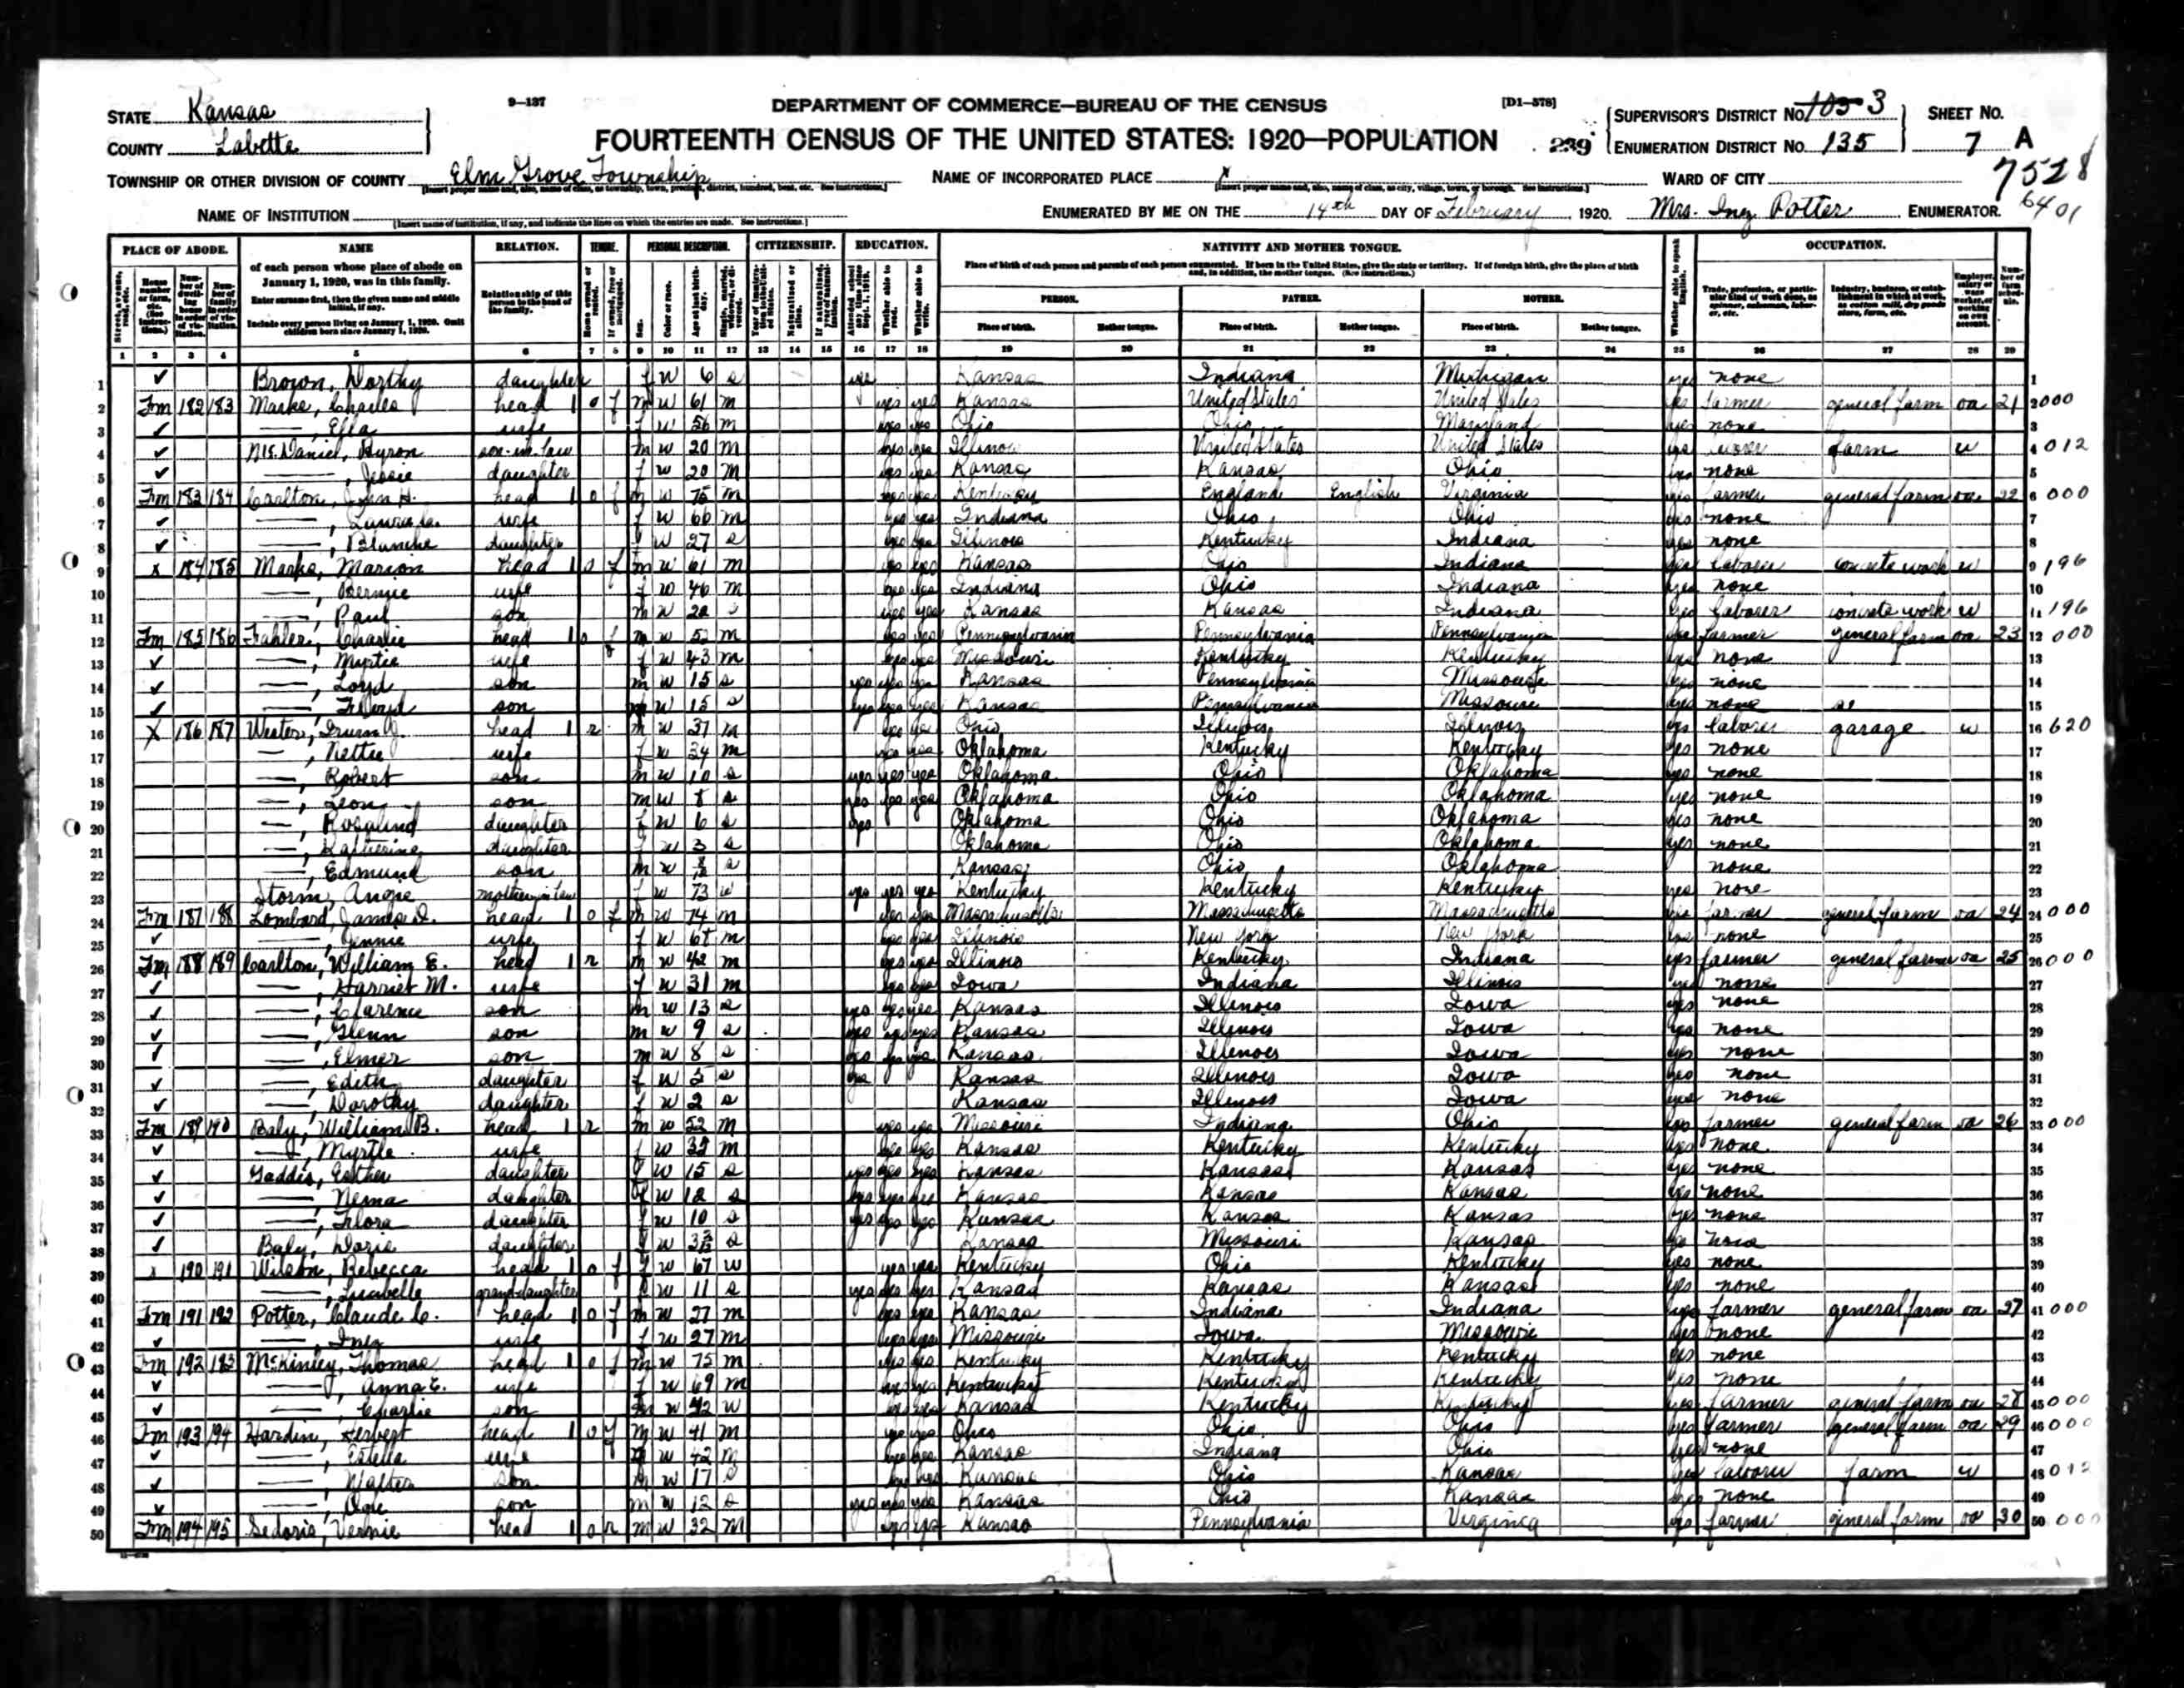 9—137 DEPARTMENT OF COMMERCE—BUREAU OF THE CENSUS [D1—578]
STATE Kansas SUPERVISOR'S DISTRICT No. 103 3 SHEET No.
COUNTY Labette FOURTEENTH CENSUS OF THE UNITED STATES: 1920—POPULATION 239 ENUMERATION DISTRICT No. 135 7 A
TOWNSHIP OR OTHER DIVISION OF COUNTY Elm Grove Township NAME OF INCORPORATED PLACE x WARD OF CITY 7528
NAME OF INSTITUTION ENUMERATED BY ME ON THE 14th DAY OF February, 1920. Mrs. Inez Potter ENUMERATOR. 6401
PLACE OF ABODE. NAME RELATION. TENURE. PERSONAL DESCRIPTION. CITIZENSHIP. EDUCATION. NATIVITY AND MOTHER TONGUE. OCCUPATION.
of each person whose place of abode on January 1, 1920, was in this family.
Enter surname first, then the given name and middle initial, if any.
Include every person living on January 1, 1920. Omit children born since January 1, 1920.
Relationship of this person to the head of the family.
Place of birth of each person and parents of each person enumerated. If born in the United States, give the state or territory. If of foreign birth, give the place of birth and, in addition, the mother tongue. (See instructions.)
PERSON. FATHER. MOTHER.
Place of birth. Mother tongue. Place of birth. Mother tongue. Place of birth. Mother tongue.
1 2 3 4 5 6 7 8 9 10 11 12 13 14 15 16 17 18 19 20 21 22 23 24 25 26 27 28 29
1 ✓ Brown, Dorthy daughter f w 6 s yes Kansas Indiana Michigan yes none 1
2 Fm 182 183 Marks, Charles head 1 o f m w 61 m yes yes Kansas United States United States yes farmer general farm oa 21 2 000
3 ✓ —, Ella wife f w 56 m yes yes Ohio Ohio Maryland yes none 3
4 ✓ McDaniel, Byron son-in-law m w 20 m yes yes Illinois United States United States yes farm w 4 012
5 ✓ —, Jessie daughter f w 20 m yes yes Kansas Kansas Ohio yes none 5
6 Fm 183 184 Carlton, John H. head 1 o f m w 75 m yes yes Kentucky England English Virginia yes farmer general farm oa 22 6 000
7 ✓ —, wife f w 66 m yes yes Indiana Ohio Ohio yes none 7
8 ✓ —, Blanche daughter f w 27 s yes yes Illinois Kentucky Indiana yes none 8
9 x 184 185 Marks, Marion head 1 o f m w 61 m yes yes Kansas Ohio Indiana yes laborer concrete work w 9 196
10 —, wife f w 46 m yes yes Indiana Ohio Indiana yes none 10
11 —, Paul son m w s yes yes Kansas Kansas Indiana yes laborer concrete work w 11 196
12 Fm 185 186 Fahler, Charlie head 1 o f m w 52 m yes yes Pennsylvania Pennsylvania Pennsylvania yes farmer general farm oa 23 12 000
13 ✓ —, Myrtie wife f w 43 m yes yes Missouri Kentucky Kentucky yes none 13
14 ✓ —, Loyd son m w 15 s yes yes yes Kansas Pennsylvania Missouri yes none 14
15 ✓ —, Floyd son m w 15 s yes yes yes Kansas Pennsylvania Missouri yes none 15
16 X 186 187 head 1 r m w 37 m yes yes Ohio Illinois Illinois yes laborer garage w 16 620
17 —, Nettie wife f w 34 m yes yes Oklahoma Kentucky Kentucky yes none 17
18 —, Robert son m w 10 s yes yes yes Oklahoma Ohio Oklahoma yes none 18
19 —, Leon son m w 8 s yes yes yes Oklahoma Ohio Oklahoma yes none 19
20 —, Rosalind daughter f w 6 s yes Oklahoma Ohio Oklahoma yes none 20
21 —, Katherine daughter f w 3 s Oklahoma Ohio Oklahoma yes none 21
22 —, Edmund son m w s Kansas Ohio Oklahoma none 22
23 Storm, Angie mother in law f w 73 w yes yes yes Kentucky Kentucky Kentucky yes none 23
24 Fm 187 188 Lombard, James D. head 1 o f m w 74 m yes yes Massachusetts Massachusetts Massachusetts yes farmer general farm oa 24 24 000
25 ✓ —, Jennie wife f w m yes yes Illinois New York New York yes none 25
26 Fm 188 189 Carlton, William E. head 1 r m w 42 m yes yes Illinois Kentucky Indiana yes farmer general farmer oa 25 26 000
27 ✓ —, Harriet M. wife f w 31 m yes yes Iowa Indiana Illinois yes none 27
28 ✓ —, Clarence son m w 13 s yes yes yes Kansas Illinois Iowa yes none 28
29 ✓ —, Glenn son m w 9 s yes yes yes Kansas Illinois Iowa yes none 29
30 ✓ —, Elmer son m w 8 s yes yes yes Kansas Illinois Iowa yes none 30
31 ✓ —, Edith daughter f w 5 s yes Kansas Illinois Iowa yes none 31
32 ✓ —, Dorothy daughter f w 2 s Kansas Illinois Iowa yes none 32
33 Fm 189 190 Baly, William B. head 1 r m w 52 m yes yes Missouri Indiana Ohio yes farmer general farm oa 26 33 000
34 ✓ —, Myrtle wife f w m yes yes Kansas Kentucky Kentucky yes none 34
35 ✓ Gaddis, Esther daughter f w 15 s yes yes yes Kansas Kansas Kansas yes none 35
36 ✓ —, Nema daughter f w 12 s yes yes yes Kansas Kansas Kansas yes none 36
37 ✓ —, Flora daughter f w 10 s yes yes yes Kansas Kansas Kansas yes none 37
38 ✓ Baly, Doris daughter f w s Kansas Missouri Kansas none 38
39 x 190 191 Wilson, Rebecca head 1 o f f w 67 w yes yes Kentucky Ohio Kentucky yes none 39
40 —, granddaughter f w 11 s yes yes yes Kansas Kansas Kansas yes none 40
41 Fm 191 192 Potter, Claude C. head 1 o f m w 27 m yes yes Kansas Indiana Indiana yes farmer general farm oa 27 41 000
42 ✓ —, Inez wife f w 27 m yes yes Missouri Iowa Missouri yes none 42
43 Fm 192 193 McKinley, Thomas head 1 o f m w 75 m yes yes Kentucky Kentucky Kentucky yes none 43
44 ✓ —, Anna E. wife f w 69 m yes yes Kentucky Kentucky Kentucky yes none 44
45 ✓ —, Charlie son m w 42 w yes yes Kansas Kentucky Kentucky yes farmer general farm oa 28 45 000
46 Fm 193 194 Hardin, Herbert head 1 o f m w 41 m yes yes Ohio Ohio Ohio yes farmer general farm oa 29 46 000
47 ✓ —, Estella wife f w 42 m yes yes Kansas Indiana Ohio yes none 47
48 ✓ —, Walter son m w 17 s yes yes Kansas Ohio Kansas yes laborer farm w 48 012
49 ✓ —, son m w 12 s yes yes yes Kansas Ohio Kansas yes none 49
50 Fm 194 195 Sedoris, Vernie head 1 o r m w 32 m yes yes Kansas Pennsylvania Virginia yes farmer general farm oa 30 50 000